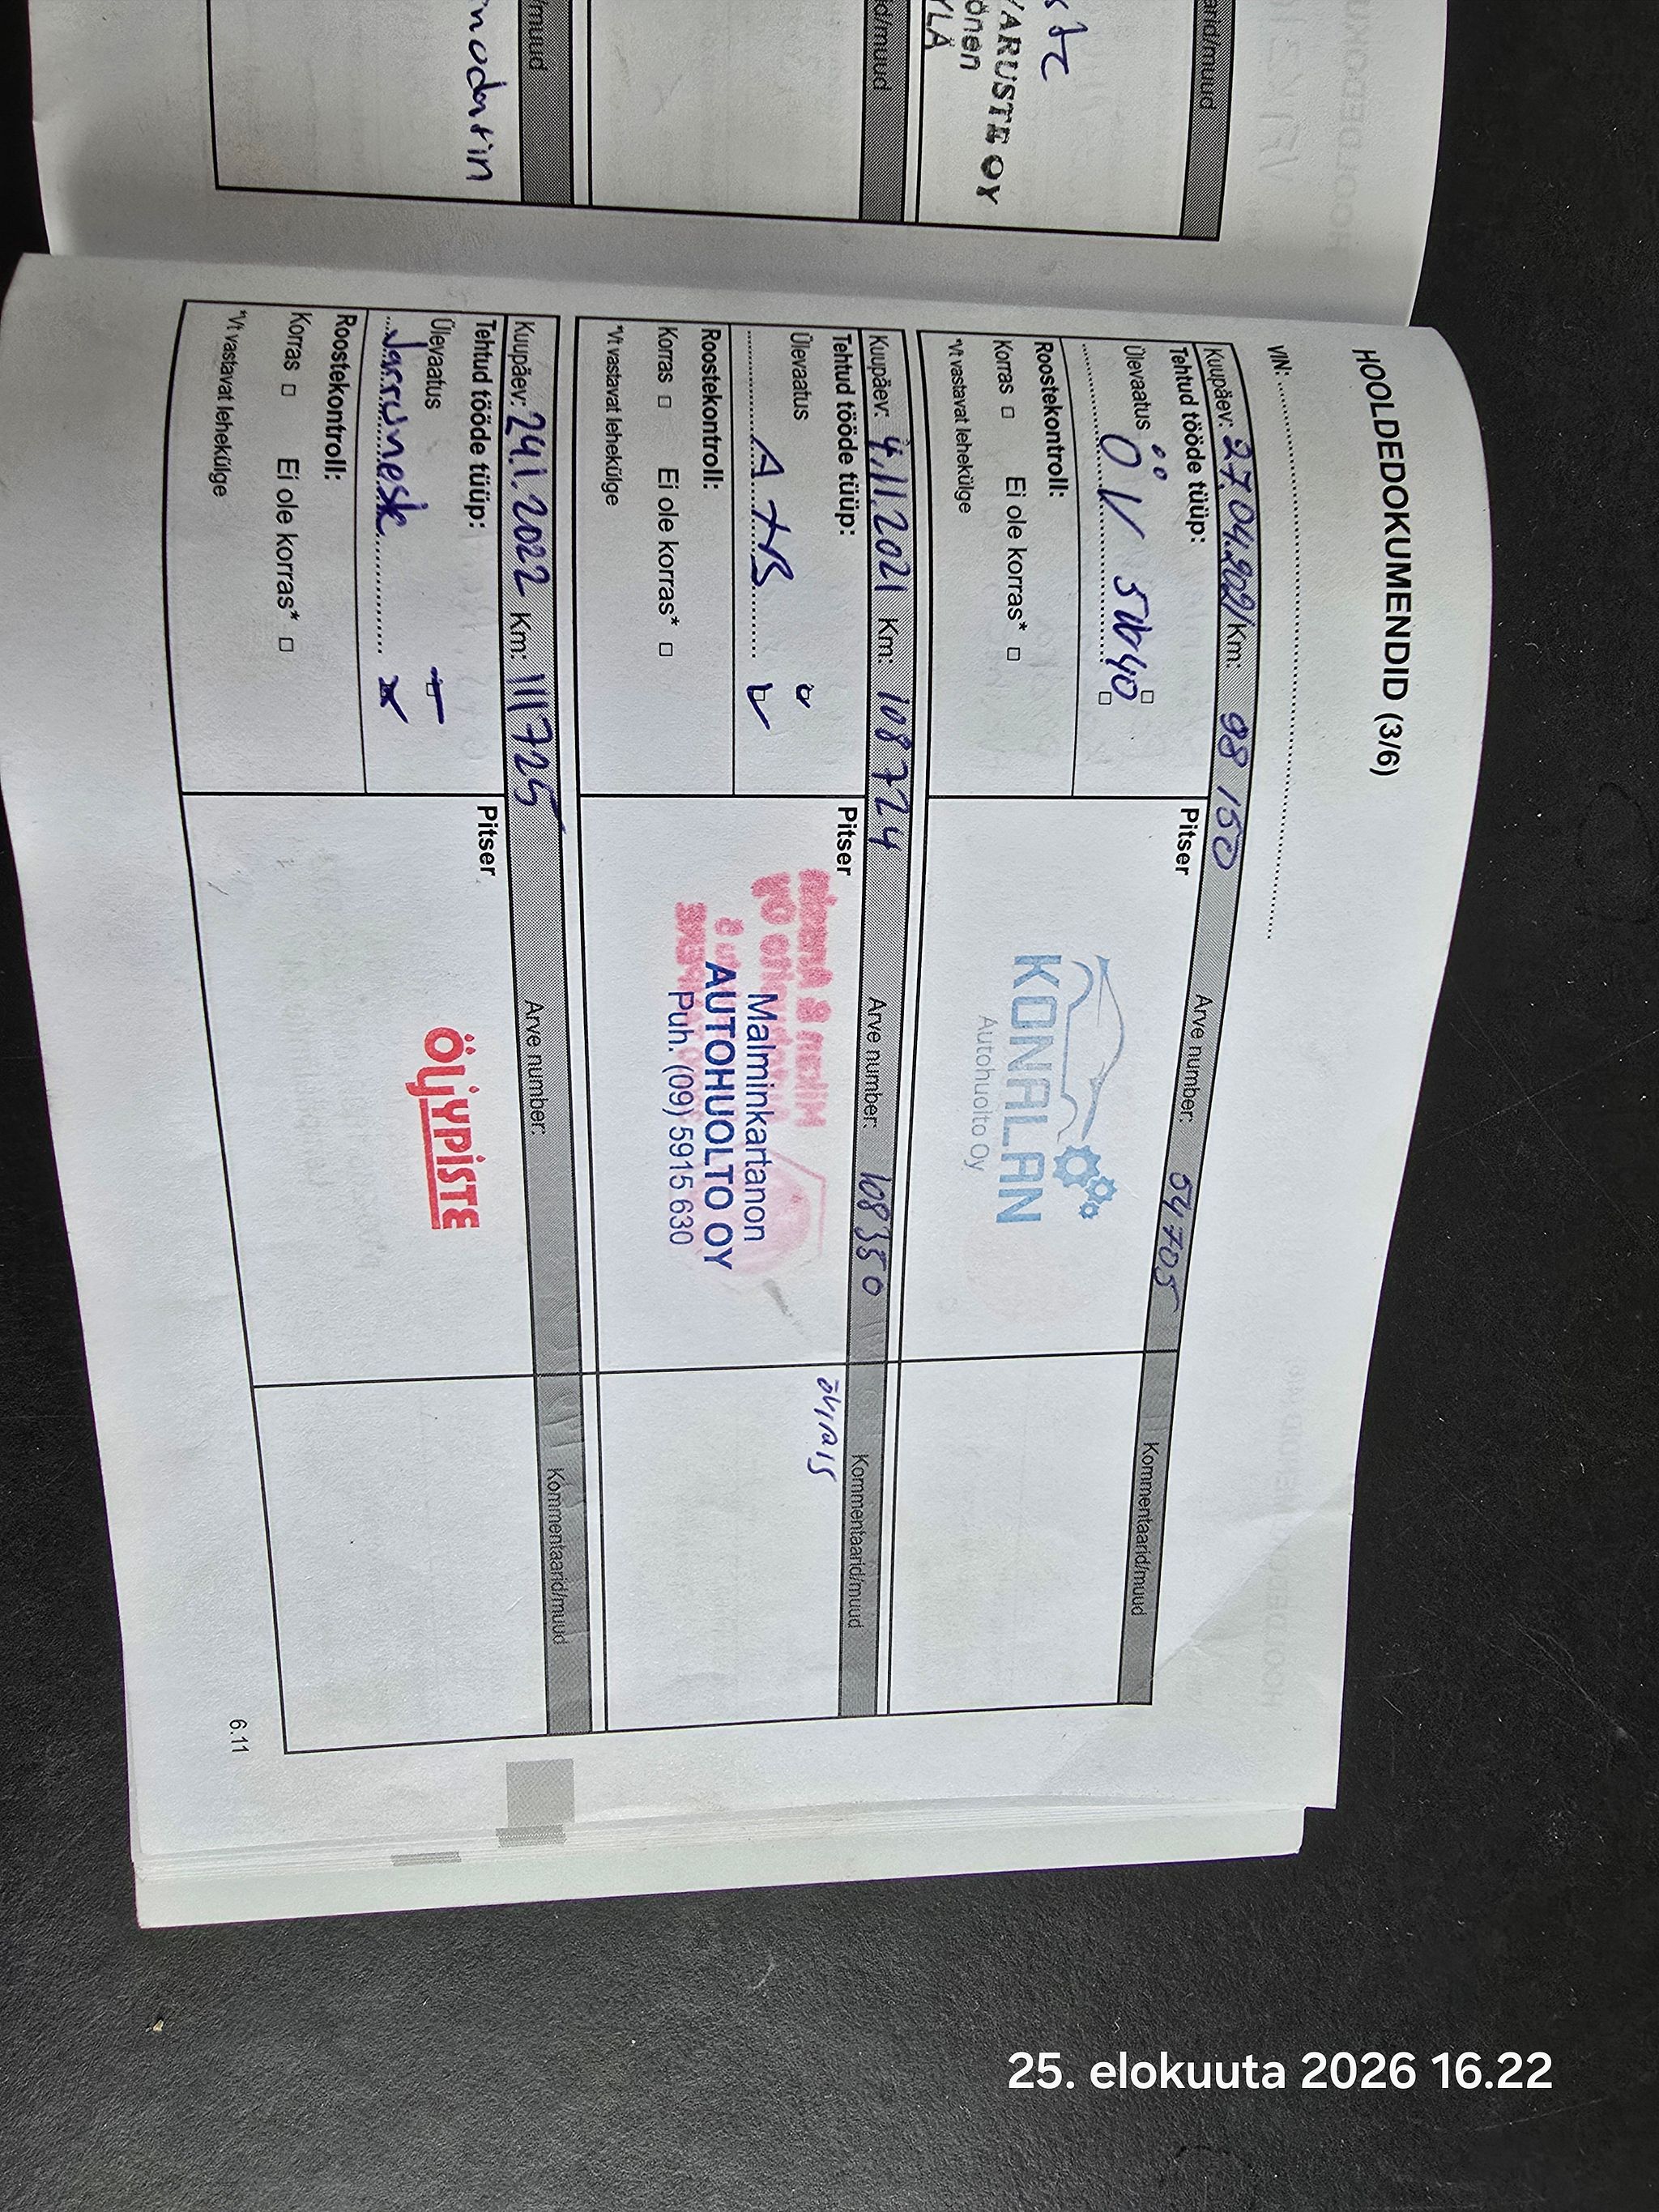 HOOLDEDOKUMENDID (3/6)
VIN:
Kuupäev: 27.04.2021 Km: 98 150 Arve number: 54705 Kommentaarid/muud
Tehtud tööde tüüp: Pitser
Ülevaatus
ÖV 5W40
Roostekontroll:
Korras Ei ole korras*
*Vt vastavat lehekülge
KONALAN
Autohuolto Oy
Kuupäev: 4.11.2021 Km: 108 724 Arve number: 108350 Kommentaarid/muud
Tehtud tööde tüüp: Pitser
Ülevaatus
A+B
Roostekontroll:
Korras Ei ole korras*
*Vt vastavat lehekülge
Malminkartanon
AUTOHUOLTO OY
Puh. (09) 5915 630
Kuupäev: 24.1.2022 Km: 111725 Arve number: Kommentaarid/muud
Tehtud tööde tüüp: Pitser
Ülevaatus
Jarrunesk
Roostekontroll:
Korras Ei ole korras*
*Vt vastavat lehekülge
ÖljYPiSTE
6.11
arid/muud
VARUSTE OY
önen
YLÄ
id/muud
/muud
modarin
25. elokuuta 2026 16.22